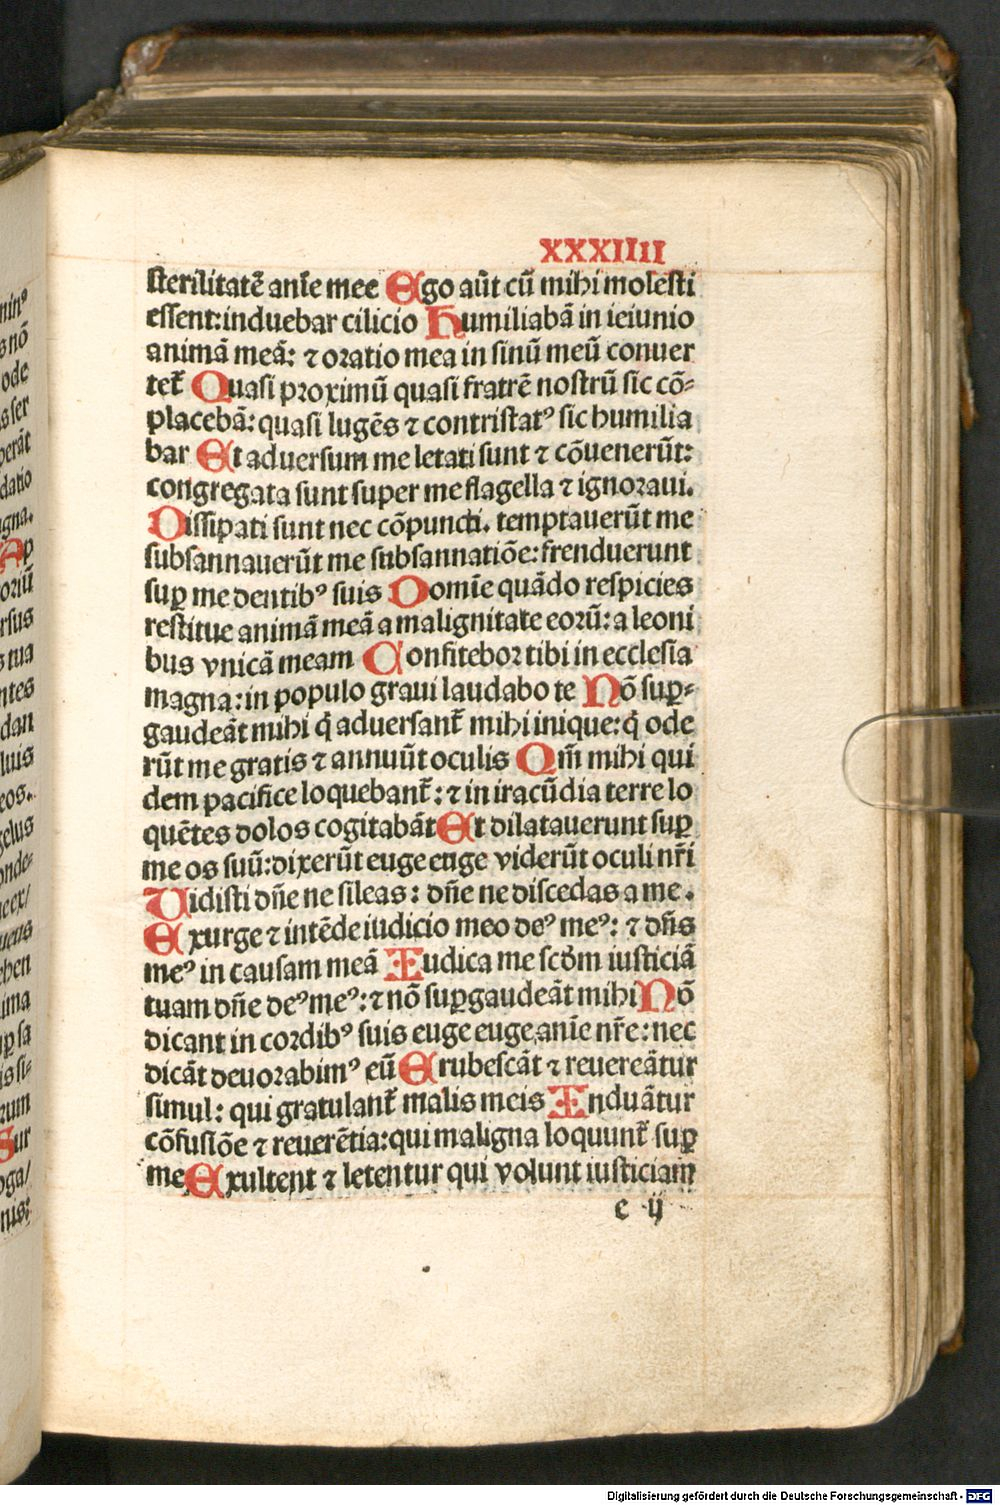 XXXIIII
sterilitatē anīe mee Ego aūt cū mihi molesti
essent: induebar cilicio Humiliabā in ieiunio
animā meā: ⁊ oratio mea in sinū meū conuer
tet̄ Quasi proximū quasi fratrē nostrū sic cō-
placebā: quasi lugēs ⁊ contristatꝰ sic humilia
bar Et aduersum me letati sunt ⁊ cōuenerūt:
congregata sunt super me flagella ⁊ ignoraui.
Dissipati sunt nec cōpuncti. temptauerūt me
subsannauerūt me subsannatiōe: frenduerunt
suꝑ me dentibꝰ suis Domīe quādo respicies
restitue animā meā a malignitate eorū: a leoni
bus vnicā meam Confitebor tibi in ecclesia
magna: in populo graui laudabo te Nō suꝑ-
gaudeāt mihi q̄ aduersant̄ mihi inique: q̄ ode
rūt me gratis ⁊ annuūt oculis Qm̄ mihi qui
dem pacifice loquebant̄: ⁊ in iracūdia terre lo
quētes dolos cogitabāt Et dilatauerunt suꝑ
me os suū: dixerūt euge euge viderūt oculi nr̄i
Uidisti dn̄e ne sileas: dn̄e ne discedas a me.
Exurge ⁊ intēde iudicio meo deꝰ meꝰ: ⁊ dn̄s
meꝰ in causam meā Iudica me scd̄m iusticiā
tuam dn̄e deꝰ meꝰ: ⁊ nō suꝑgaudeāt mihi Nō
dicant in cordibꝰ suis euge euge anīe nr̄e: nec
dicāt deuorabimꝰ eū Erubescāt ⁊ reuereātur
simul: qui gratulant̄ malis meis Induātur
cōfusiōe ⁊ reuerētia: qui maligna loquunt̄ suꝑ
me Exultent ⁊ letentur qui volunt iusticiam
e ij
ninꝰ
s nō
ode
s ser
perāt
datio
gna.
Ap
oriū
rsus
s tua
ntes
dan
luis
eos.
gelus
onde-
ucex/
ueus
eben
ima
uꝑ sa
is si-
rum
Sur
oga/
nis:
Digitalisierung gefördert durch die Deutsche Forschungsgemeinschaft - DFG